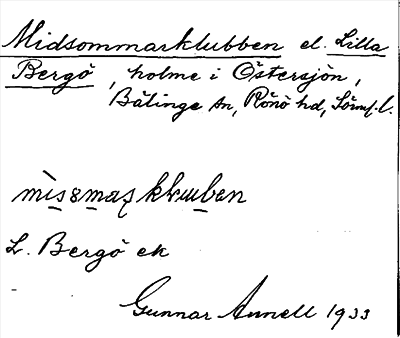 Midsommarklubben el. Lilla
Bergö, holme i Östersjön,
Bälinge sn, Rönö hd, Sörml.
L. Bergö ek
Gunnar Annell 1933